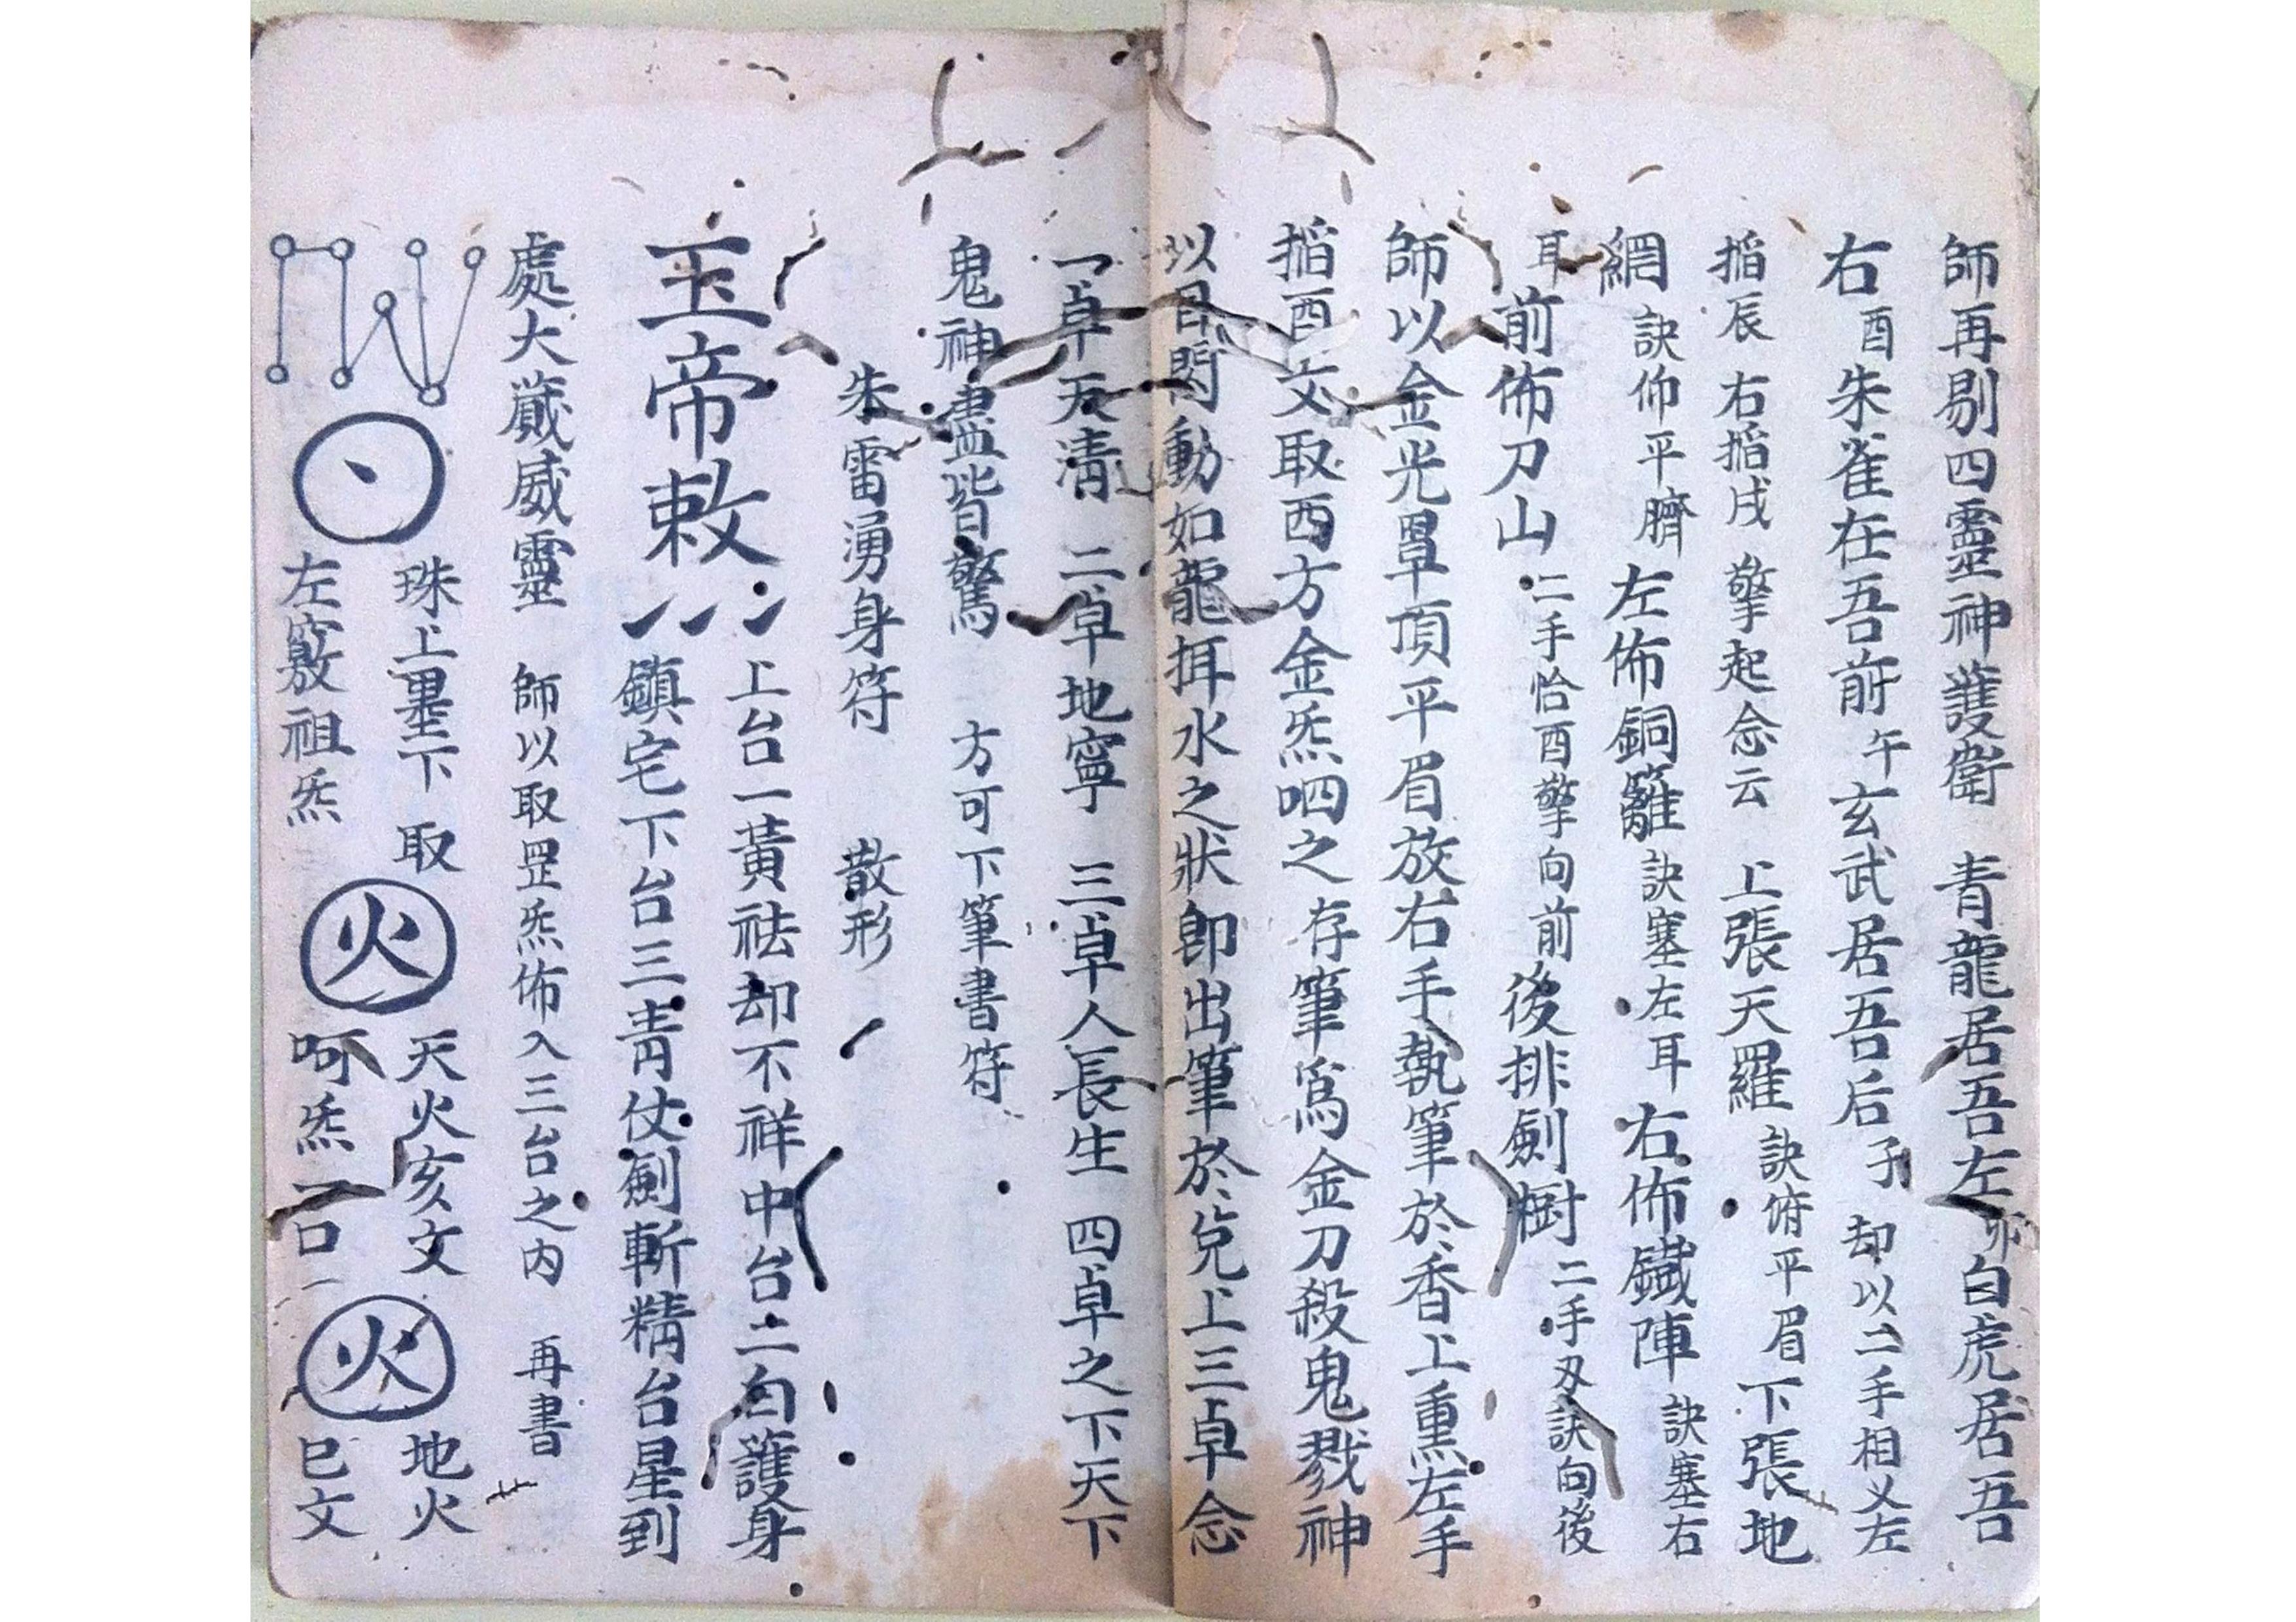 師再剔四靈神護衛 青龍居吾左卯白虎居吾
右酉朱雀在吾前午玄武居吾后子 却以二手相义左
掐辰 右掐戌 擎起念云 上張天羅 訣俯平眉 下張地
網 訣仰平臍 左佈銅籬 訣塞左耳 右佈鐵陣 訣塞右
耳 前佈刀山 二手恰酉擎向前 後排劍樹 二手刄訣向後
師以金光罩頂平眉放右手執筆於香上熏左手
掐酉文取西方金炁呬之存筆為金刀殺鬼戮神
以 動如龍挕水之狀即出筆於兌上三卓念
一卓天清 二卓地寧 三卓人長生 四卓之下天下
鬼神盡皆驚 方可下筆書符
朱雷湧身符 散形
玉帝敕
上台一黃祛却不祥中台二白護身
鎮宅下台三青仗劍斬精台星到
處大 威靈 師以取罡炁佈入三台之內 再書
珠上墨下 取
左 祖炁
火
天火亥文
呵炁一口
火
地火
巳文